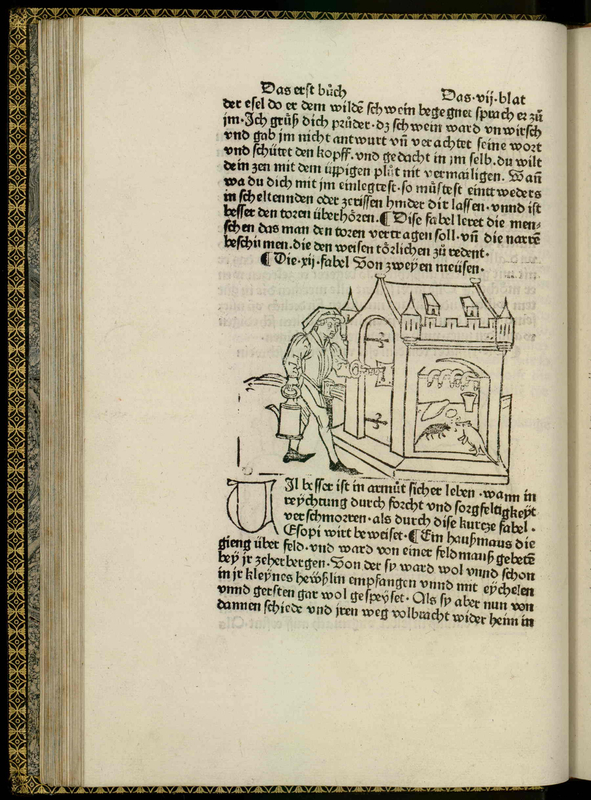 Das erst bůch Das·vij·blat
der esel do er dem wildē schwein begegnet sprach er zů
jm·Ich grůß dich průder·dz schwein ward vnwirsch
vnd gab jm nicht antwurt vñ verachtet seine wort
vnd schütet den kopff·vnd gedacht in jm selb·du wilt
dein zen mit dem üppigen plůt nit vermailigen·Wañ
wa du dich mit jm einlegtest·so můstest eintweders
in scheltennden oder zerissen hinder dir lassen·vnnd ist
besser den toren überhören·¶Dise fabel leret die men⸗
schen das man den toren vertragen soll·vñ die narrē
beschimen·die den weisen törlichen zů redent·
¶Die·xij·fabel Von zweyen meüsen·
UIl besser ist in armůt sicher leben·wann in
reychtung durch forcht vnd sorgfeltigkeyt
verschmorren·als durch dise kurcze fabel·
Esopi wirt beweiset·¶Ein haußmaus die
gieng über feld·vnd ward von einer feldmauß gebetē
bey jr zeherbergen·Von der sy ward wol vnnd schon
in jr kleynes hewßlin empfangen vnnd mit eychelen
vnnd gersten gar wol gespeyset·Als sy aber nun von
dannen schiede vnd jren weg volbracht wider heim in